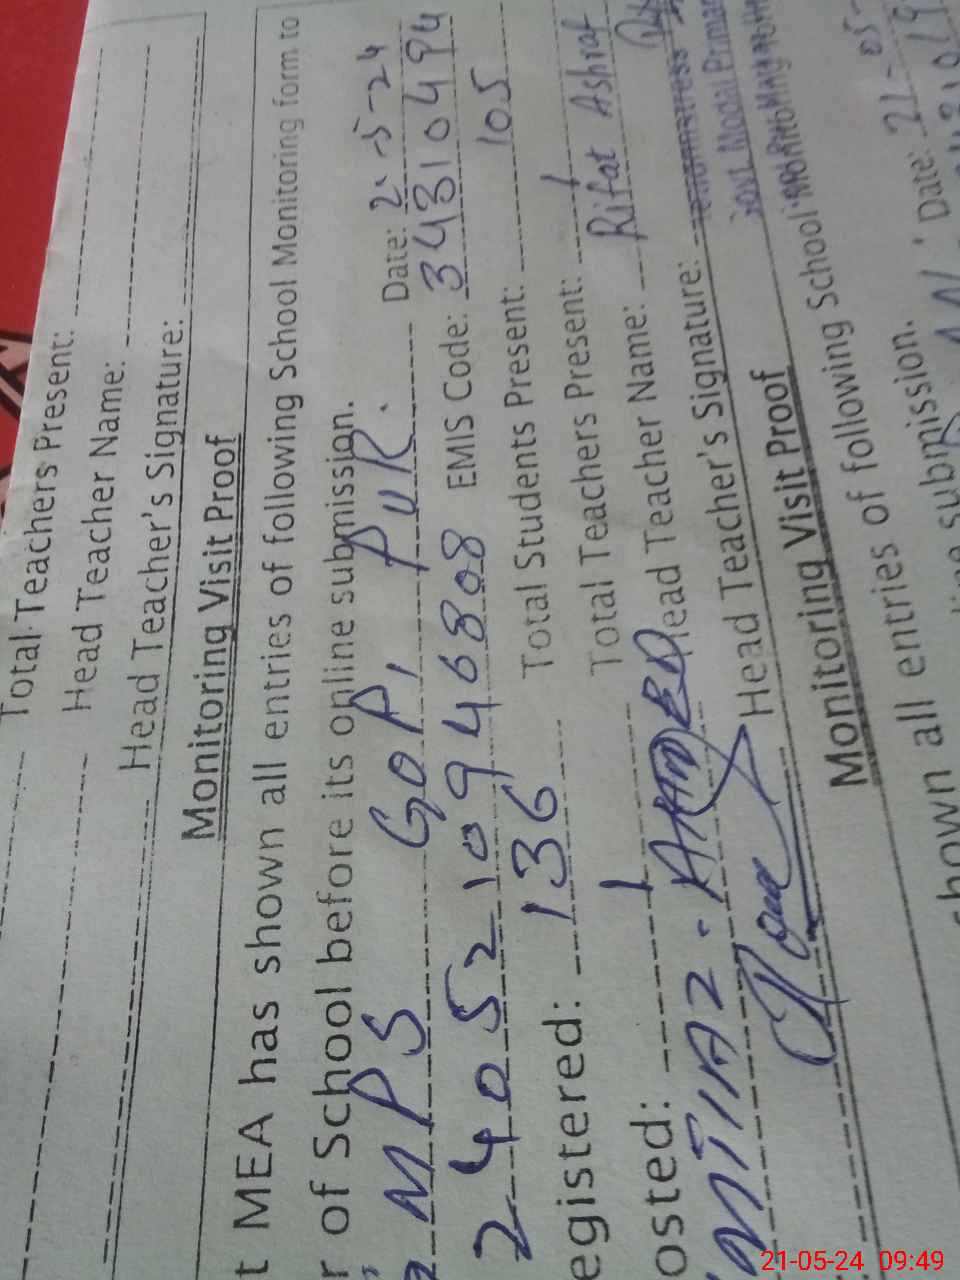 Total Teachers Present:
Head Teacher Name:
Head Teacher's Signature:
Monitoring Visit Proof
t MEA has shown all entries of following School Monitoring form to
r of School before its online submission.
MPS GOPI PUR. Date: 2-5-24
2405210946808 EMIS Code: 34310494
egistered: 136 Total Students Present: 105
osted: 1 Total Teachers Present: 1
IMTIAZ. AHMED Head Teacher Name: Rifat Ashraf
Head Teacher's Signature:
Monitoring Visit Proof
shown all entries of following School
submission. Date: 21-05-
21-05-24 09:49